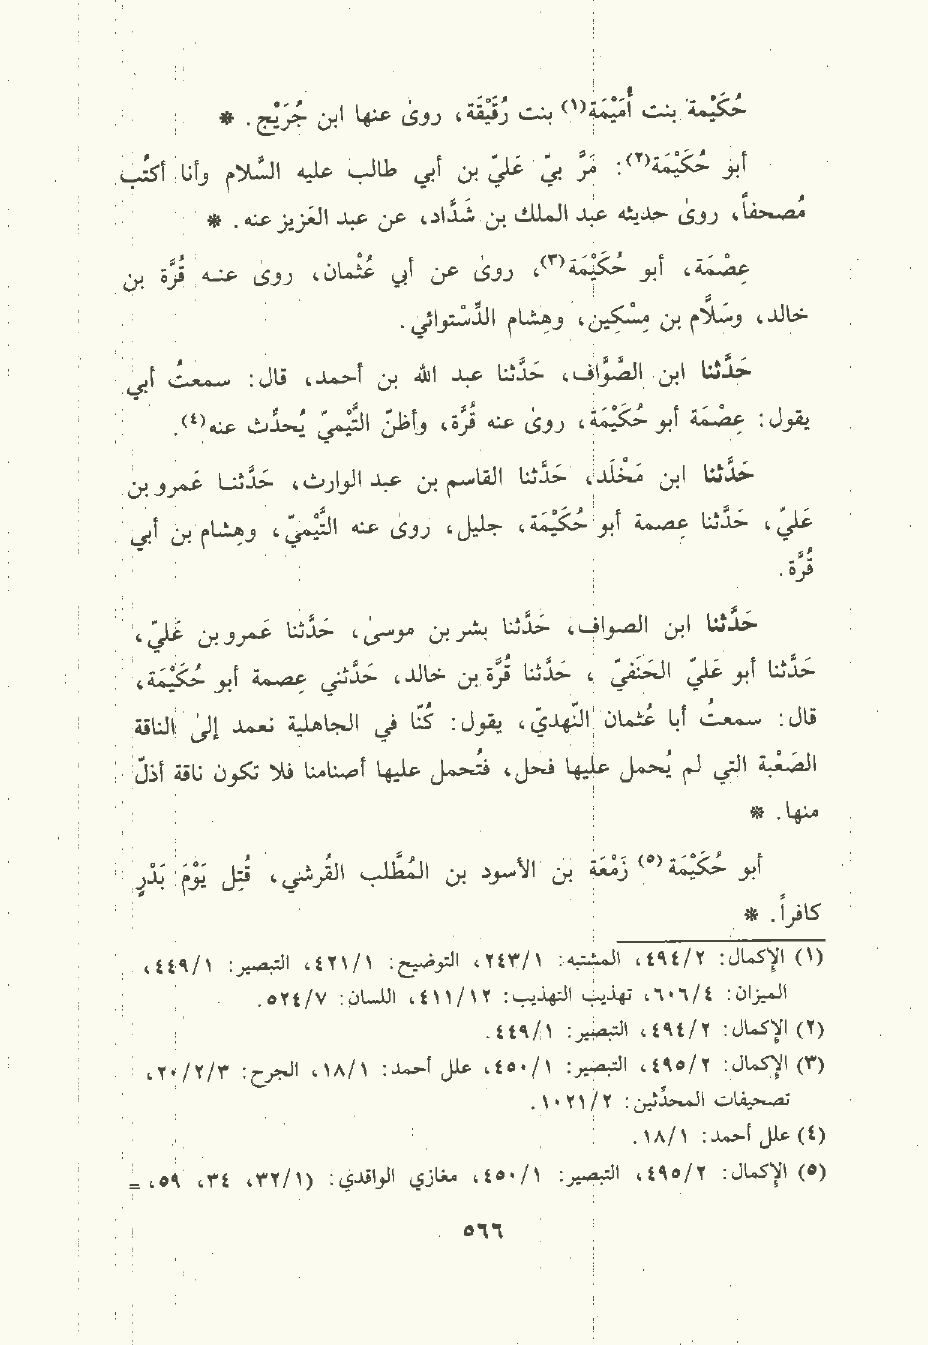 حُكَيْمة بنت أُمَيْمَة(١) بنت رُقَيْقَة، روىٰ عنها ابن جُرَيْج. *
أبو حُكَيْمَة(٢): مَرَّ بيّ عَليّ بن أبي طالب عليه السَّلام وأنا أكتُب
مُصحفاً، روىٰ حديثه عبد الملك بن شَدَّاد، عن عبد العَزيز عنه. *
عِصْمَة، أبو حُكَيْمَة(٣)، روىٰ عن أبي عُثْمان، روىٰ عنه قُرَّة بن
خالد، وسَلَّام بن مِسْكِين، وهِشام الدِّسْتوائي.
حَدَّثنا ابن الصَّوَّاف، حَدَّثنا عبد الله بن أحمد، قال: سمعتُ أبي
يقول: عِصْمَة أبو حُكَيْمَة، روىٰ عنه قُرَّة، وأظنّ التَّيْميّ يُحدِّث عنه(٤).
حَدَّثنا ابن مَخْلَد، حَدَّثنا القاسم بن عبد الوارث، حَدَّثنا عَمرو بن
عَليّ، حَدَّثنا عِصمة أبو حُكَيْمَة، جليل، روىٰ عنه التَّيْميّ، وهِشام بن أبي
قُرَّة.
حَدَّثنا ابن الصواف، حَدَّثنا بشر بن موسىٰ، حَدَّثنا عَمرو بن عَليّ،
حَدَّثنا أبو عَليّ الحَنَفيّ، حَدَّثنا قُرَّة بن خالد، حَدَّثني عِصمة أبو حُكَيْمَة،
قال: سمعتُ أبا عُثمان النّهديّ، يقول: كُنّا في الجاهلية نعمد إلىٰ الناقة
الصَعْبة التي لم يُحمل عليها فحل، فتُحمل عليها أصنامنا فلا تكون ناقة أذلّ
منها. *
أبو حُكَيْمَة(٥) زَمْعَة بن الأسود بن المُطَّلب القُرشي، قُتِل يَوْمَ بَدْرٍ
كافراً. *
(١) الإكمال: ٤٩٤/٢، المشتبه: ٢٤٣/١، التوضيح: ٤٢١/١، التبصير: ٤٤٩/١،
الميزان: ٦٠٦/٤، تهذيب التهذيب: ٤١١/١٢، اللسان: ٥٢٤/٧.
(٢) الإكمال: ٤٩٤/٢، التبصير: ٤٤٩/١.
(٣) الإكمال: ٤٩٥/٢، التبصير: ٤٥٠/١، علل أحمد: ١٨/١، الجرح: ٢٠/٢/٣،
تصحيفات المحدِّثين: ١٠٢١/٢.
(٤) علل أحمد: ١٨/١.
(٥) الإكمال: ٤٩٥/٢، التبصير: ٤٥٠/١، مغازي الواقدي: (٣٢/١، ٣٤، ٥٩، =
٥٦٦